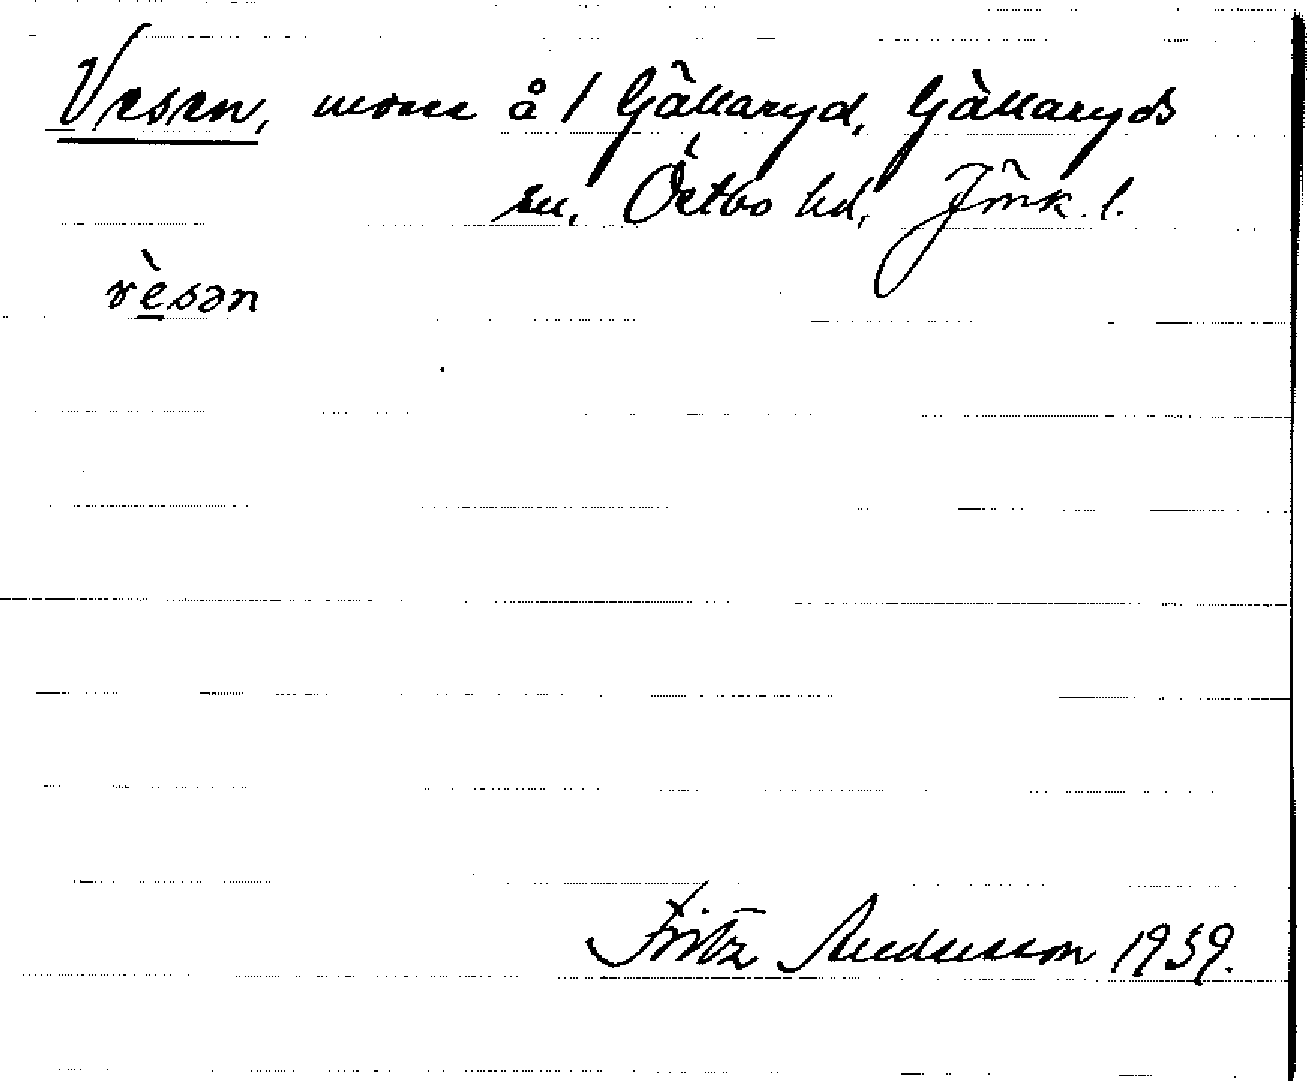 Vesen, mosse å / Gällaryd, Gällaryds
sn, Östbo hd, Jönk. l.
vèsən
Fritz Andersson 1939.